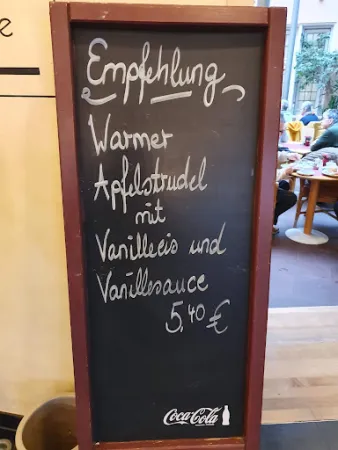 e
Empfehlung
Warmer
Apfelstrudel
mit
Vanilleeis und
Vanillesauce
5,40 €
Coca-Cola